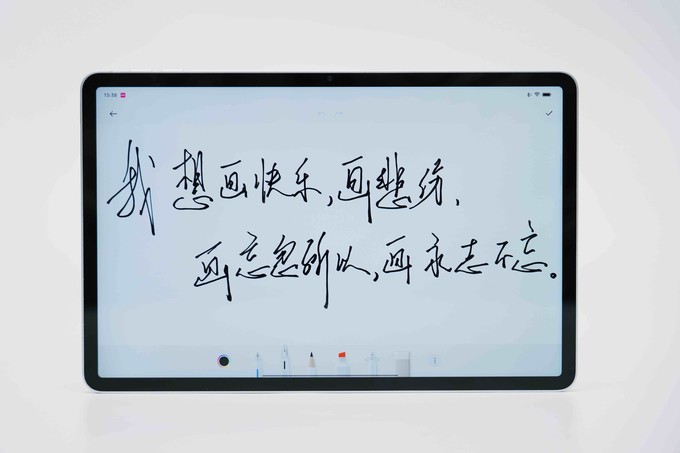 我想画快乐,画悲伤,
画忘忽所以,画永志不忘。